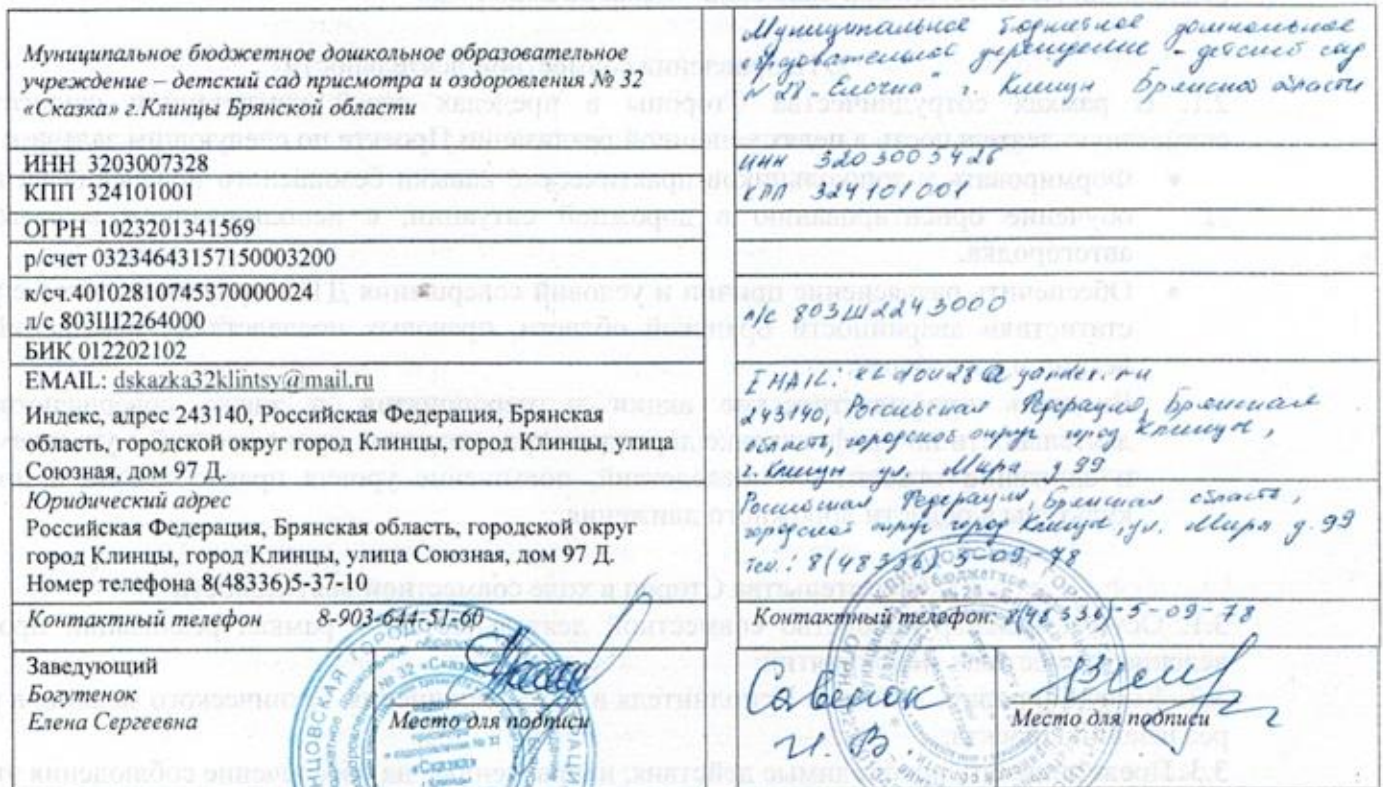 Муниципальное бюджетное дошкольное образовательное
учреждение – детский сад присмотра и оздоровления № 32
«Сказка» г.Клинцы Брянской области
ИНН 3203007328
КПП 324101001
ОГРН 1023201341569
р/счет 03234643157150003200
к/сч.40102810745370000024
л/с 803Ш2264000
БИК 012202102
EMAIL: dskazka32klintsy@mail.ru
Индекс, адрес 243140, Российская Федерация, Брянская
область, городской округ город Клинцы, город Клинцы, улица
Союзная, дом 97 Д.
Юридический адрес
Российская Федерация, Брянская область, городской округ
город Клинцы, город Клинцы, улица Союзная, дом 97 Д.
Номер телефона 8(48336)5-37-10
Контактный телефон 8-903-644-51-60
Заведующий
Богутенок
Елена Сергеевна
Место для подписи
Муниципальное бюджетное дошкольное
образовательное учреждение - детский сад
№ 28 "Елочка" г. Клинцы Брянской области
ИНН 3203003426
КПП 324101001
л/с 803Ш2243000
EMAIL: eldou28@yandex.ru
243140, Российская Федерация, Брянская
область, городской округ город Клинцы,
г. Клинцы ул. Мира д. 99
Российская Федерация, Брянская область,
городской округ город Клинцы, ул. Мира д. 99
тел.: 8(48336) 5-09-78
Контактный телефон: 8(48336)-5-09-78
Савенок
И. В.
Место для подписи